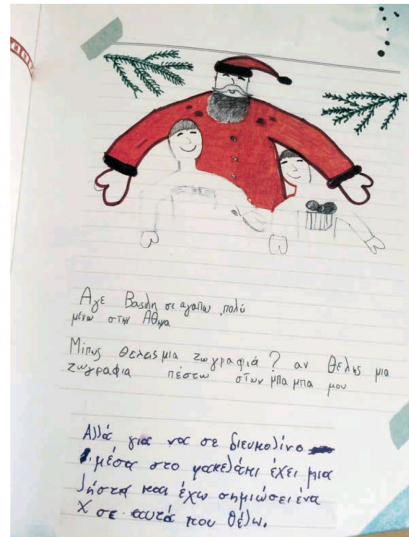 Αγε Βασιλη σε αγαπω πολύ
μένω στην Αθηνα
Μίπως θελεις μια ζωγραφιά? αν θελης μια
ζωγραφια πέστω στων μπαμπα μου
Αλλά για να σε διευκολίνο
μέσα στο φακελάκι έχει μια
λήστα και έχω σημιώσει ένα
Χ σε αυτά που θέλω.